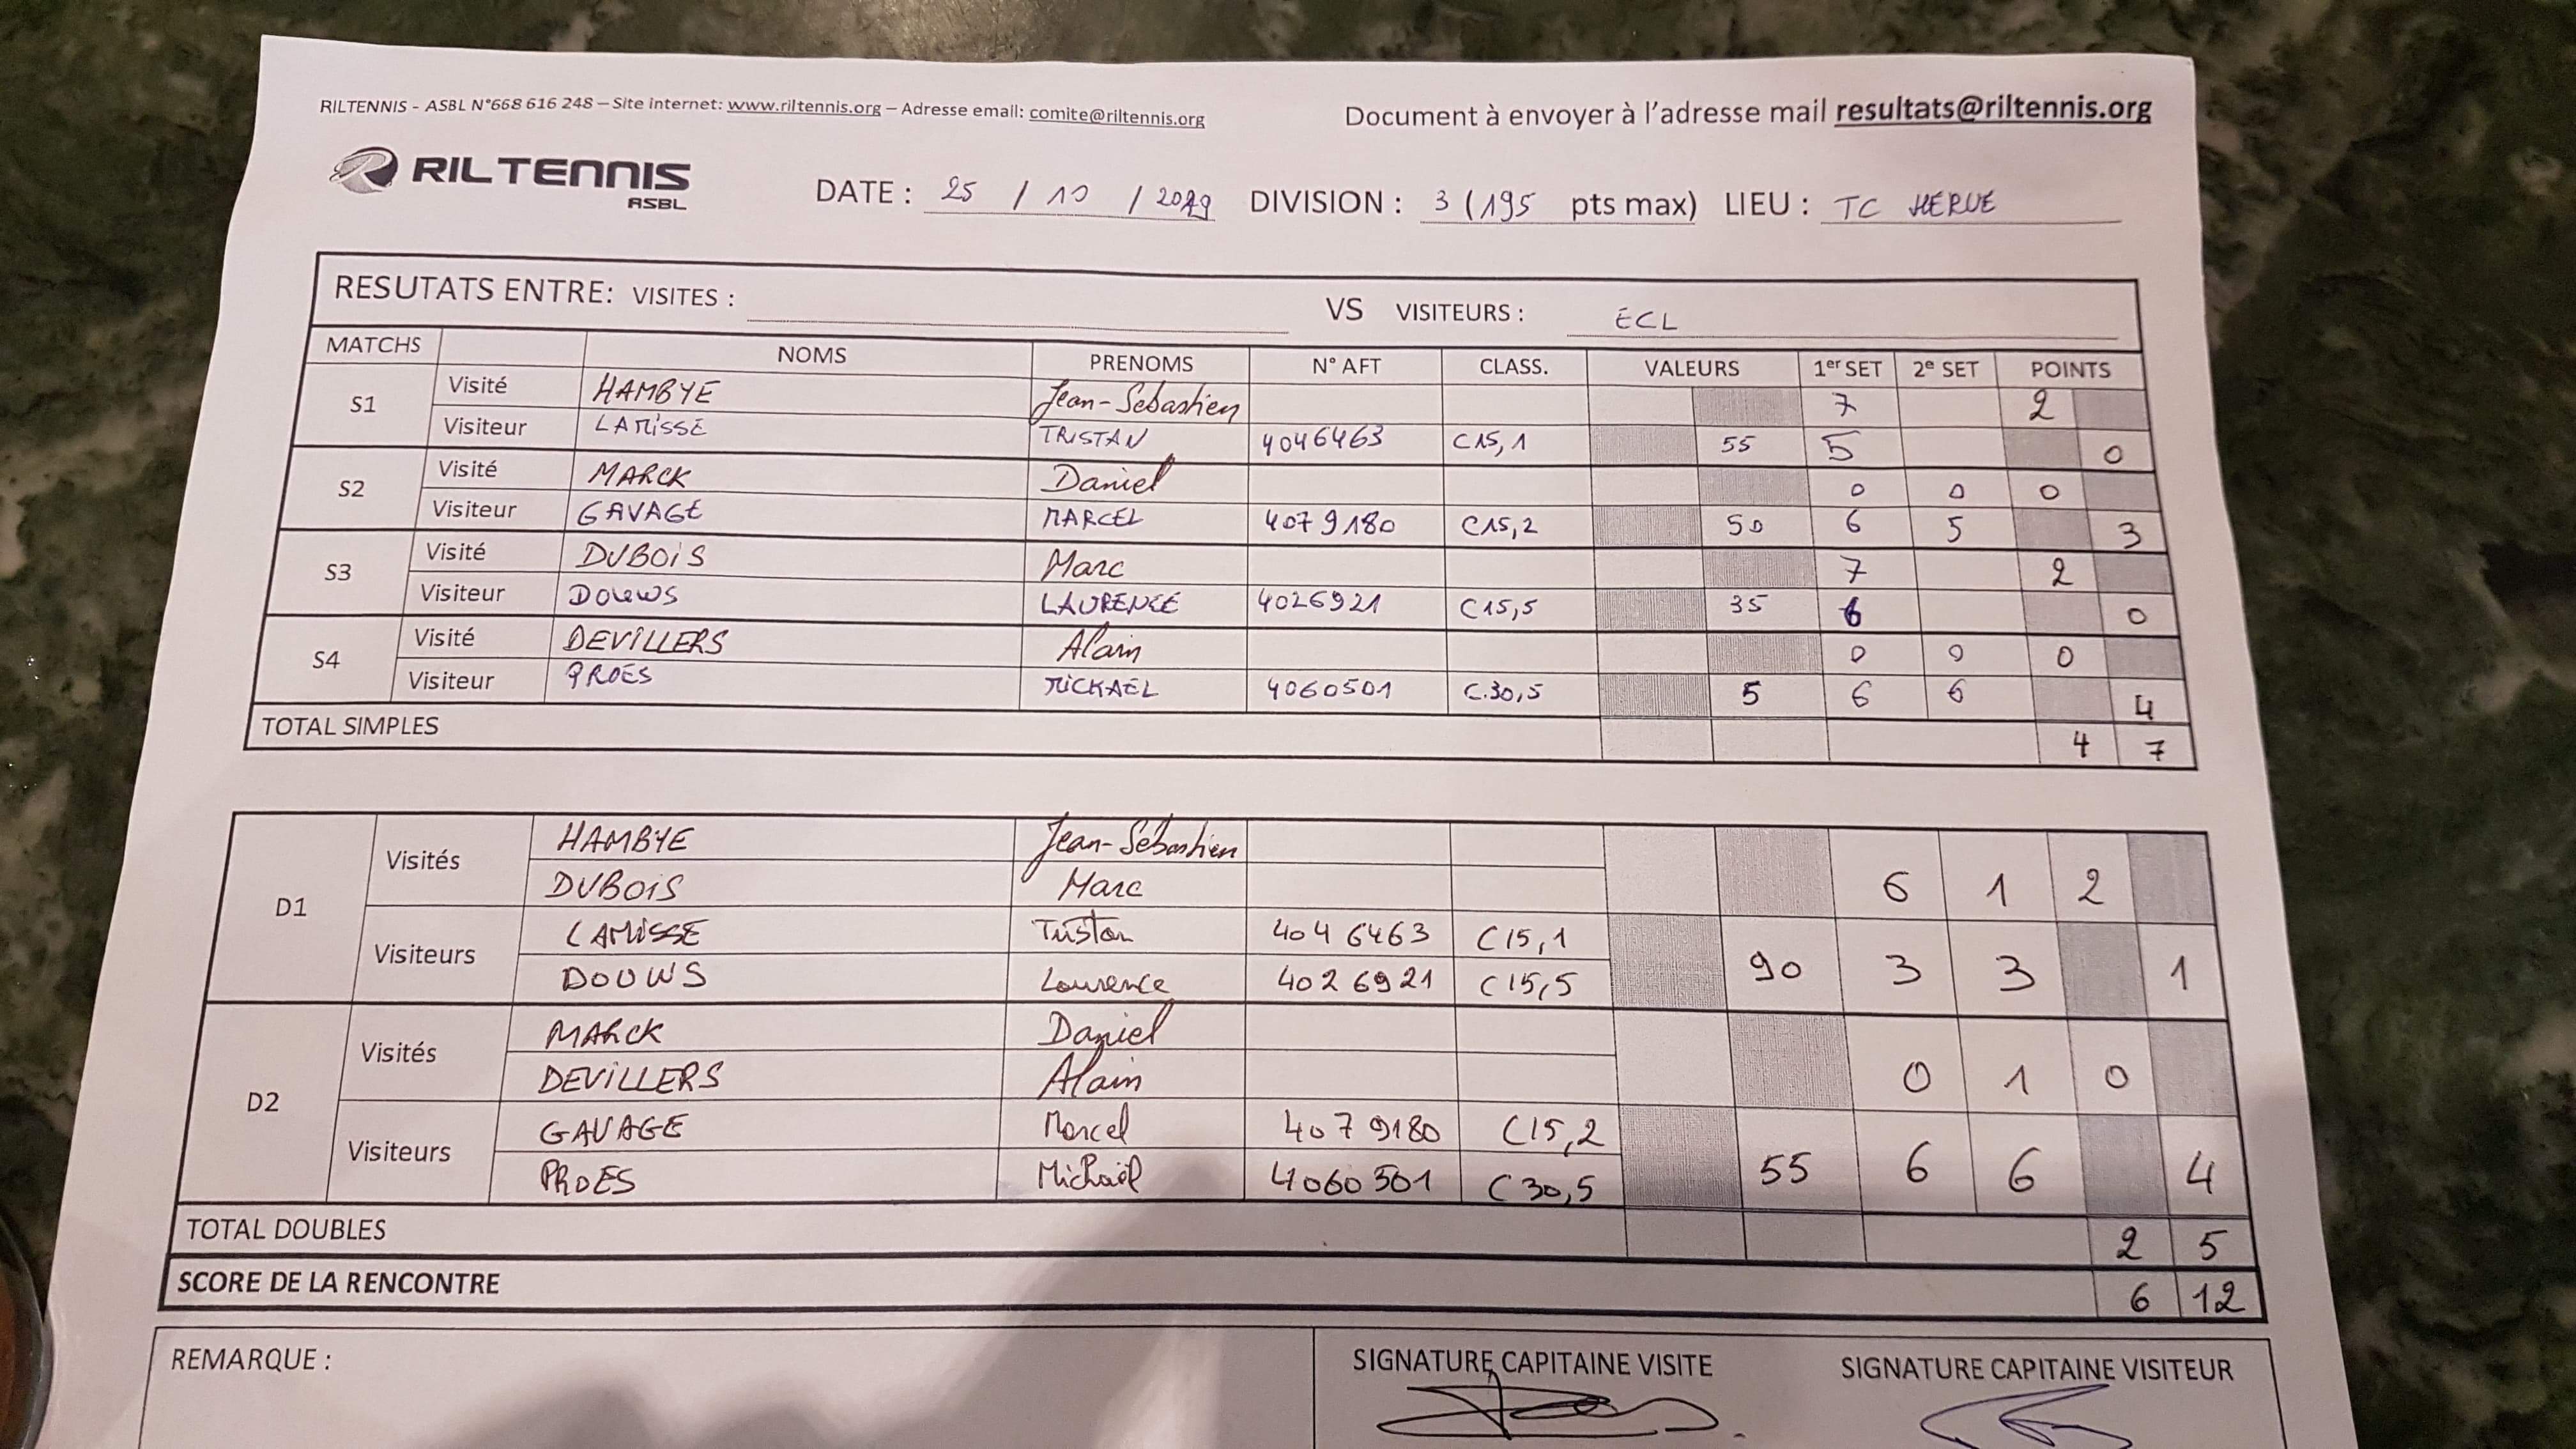 RILTENNIS - ASBL N°668 616 248 – Site internet: www.riltennis.org – Adresse email: comite@riltennis.org
Document à envoyer à l'adresse mail resultats@riltennis.org
RILTENNIS ASBL
DATE : 25 / 10 / 2019 DIVISION : 3 (195 pts max) LIEU : TC HERVE
RESUTATS ENTRE: VISITES : VS VISITEURS : ECL
MATCHS NOMS PRENOMS N° AFT CLASS. VALEURS 1er SET 2e SET POINTS
S1 Visité HAMBYE Jean-Sébastien 7 2
Visiteur LAMISSE TRISTAN 4046463 C15,1 55 5 0
S2 Visité MARCK Daniel 0 0 0
Visiteur GAVAGE MARCEL 4079180 C15,2 50 6 5 3
S3 Visité DUBOIS Marc 7 2
Visiteur DOUWS LAURENCE 4026921 C15,5 35 6 0
S4 Visité DEVILLERS Alain 0 0 0
Visiteur PROES MICKAEL 4060501 C.30,5 5 6 6 4
TOTAL SIMPLES 4 7
D1 Visités HAMBYE Jean-Sébastien
DUBOIS Marc 6 1 2
Visiteurs LAMISSE Tristan 4046463 C15,1
DOUWS Laurence 4026921 C15,5 90 3 3 1
D2 Visités MARCK Daniel
DEVILLERS Alain 0 1 0
Visiteurs GAVAGE Marcel 4079180 C15,2
PROES Michaël 4060501 C30,5 55 6 6 4
TOTAL DOUBLES 2 5
SCORE DE LA RENCONTRE 6 12
REMARQUE : SIGNATURE CAPITAINE VISITE SIGNATURE CAPITAINE VISITEUR